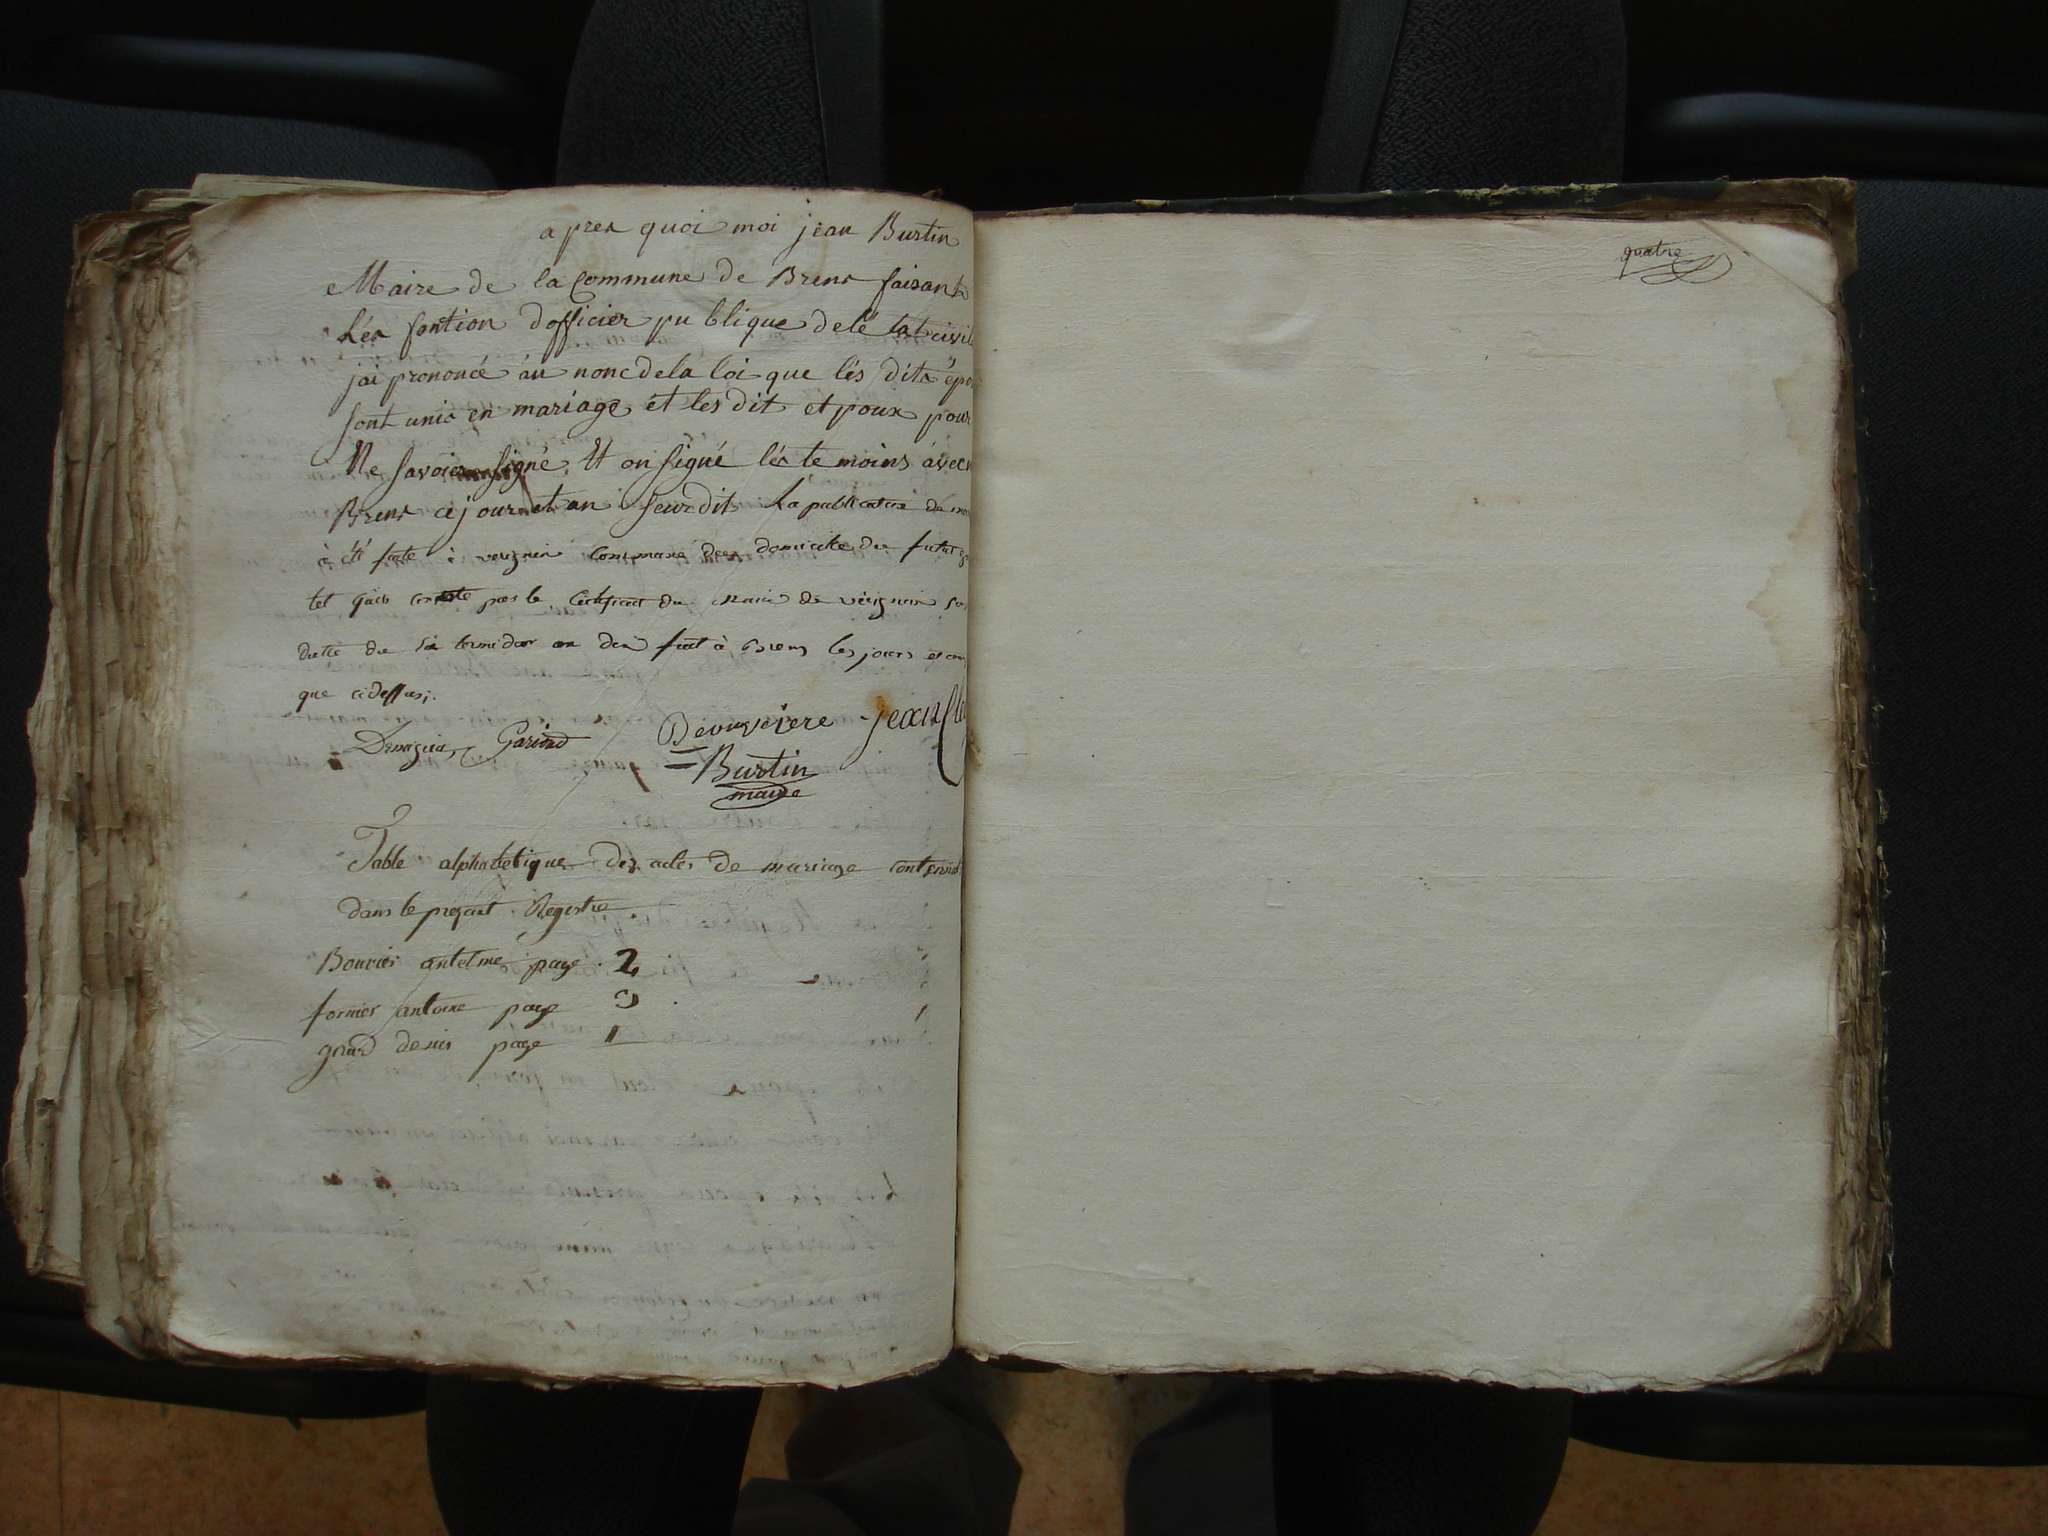 apres quoi moi jean Burtin
Maire de la Commune de Brens faisant
Lés fontion dofficier pu blique delé tat civil
jai prononcé áu nonc dela loi que lés dits épou
sont unis en mariage et les dit et poux pour
Ne savoir signé. Et on signé lés te moins ávec
Brens ce jour et an seurdit La publication dé
à été faite à veirgnin Commune du domicile du futur
tel quil conste par le Certificat du Maire de veirgnin
datté du six termidor an dix fait à Brens les jours et ans
que cidessus;.
Garind
Devugrière jean
Burtin
maire
Table alphabetique des actes de mariage contennus
dans le present Registre
Bouvier antelme page . 2
fornier antoine page 3
girard denis page 1
quatre